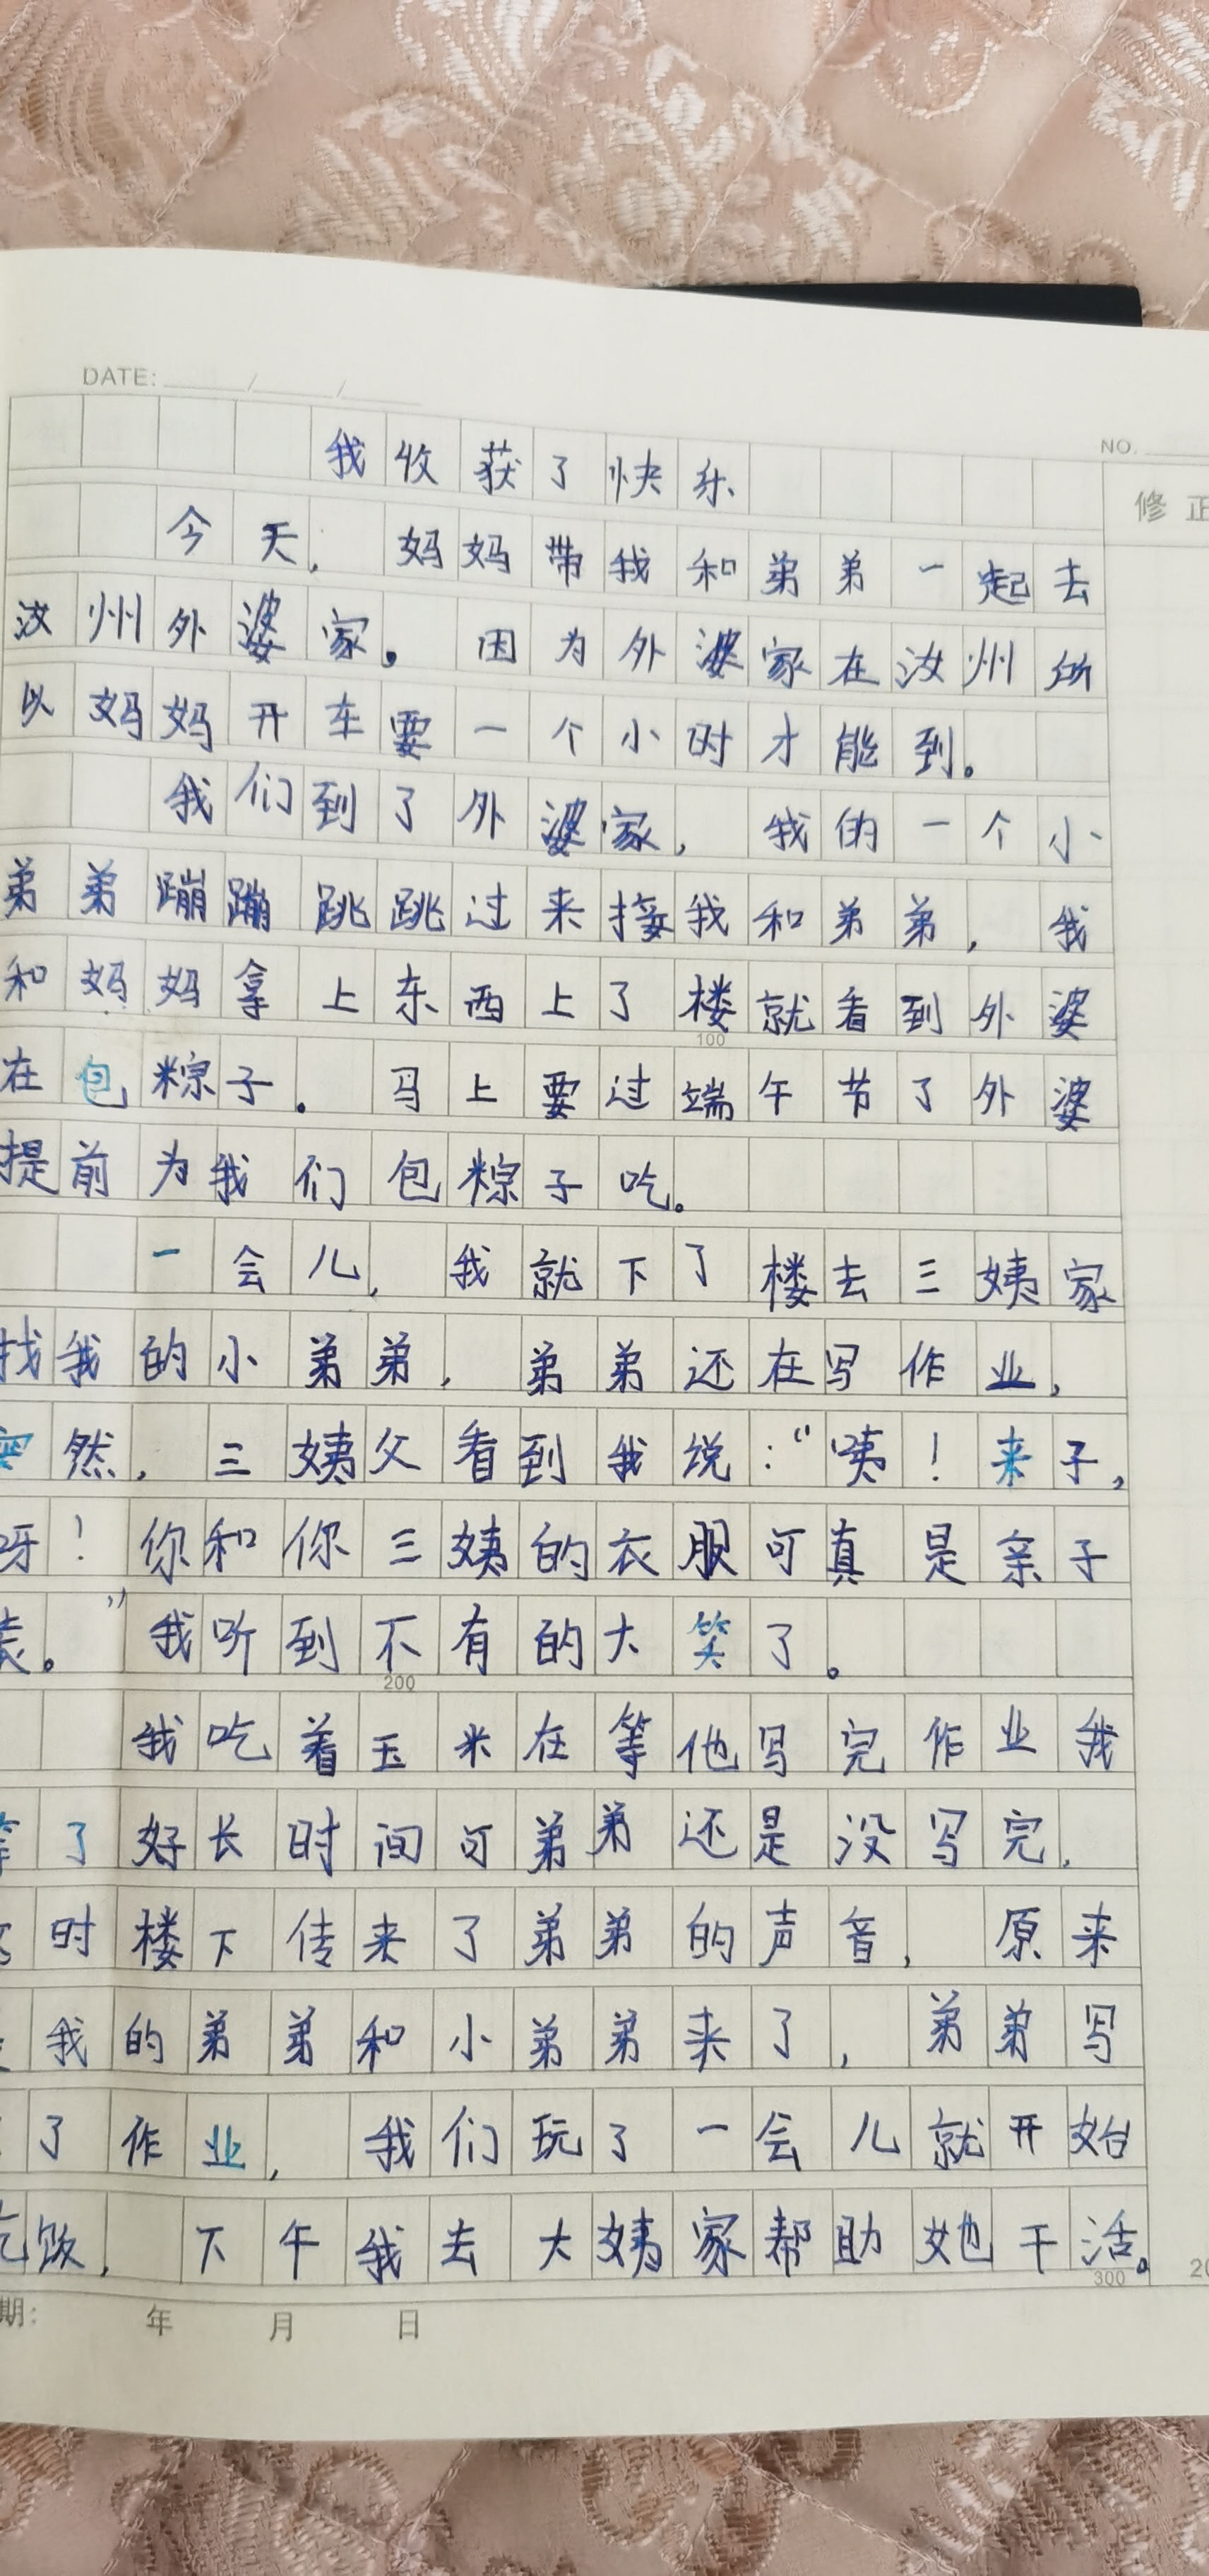 DATE: / /
NO.
我收获了快乐
修正
今天，妈妈带我和弟弟一起去
汝州外婆家。因为外婆家在汝州所
以妈妈开车要一个小时才能到。
我们到了外婆家，我的一个小
弟弟蹦蹦跳跳过来接我和弟弟，我
和妈妈拿上东西上了楼就看到外婆
100
在包粽子。马上要过端午节了外婆
提前为我们包粽子吃。
一会儿，我就下了楼去三姨家
找我的小弟弟，弟弟还在写作业，
突然，三姨父看到我说：“咦！来子，
呀！你和你三姨的衣服可真是亲子
装。”我听到不有的大笑了。
200
我吃着玉米在等他写完作业我
等了好长时间可弟弟还是没写完，
时楼下传来了弟弟的声音，原来
我的弟弟和小弟弟来了，弟弟写
了作业，我们玩了一会儿就开始
吃饭，下午我去大姨家帮助她干活。
300
期： 年 月 日
20